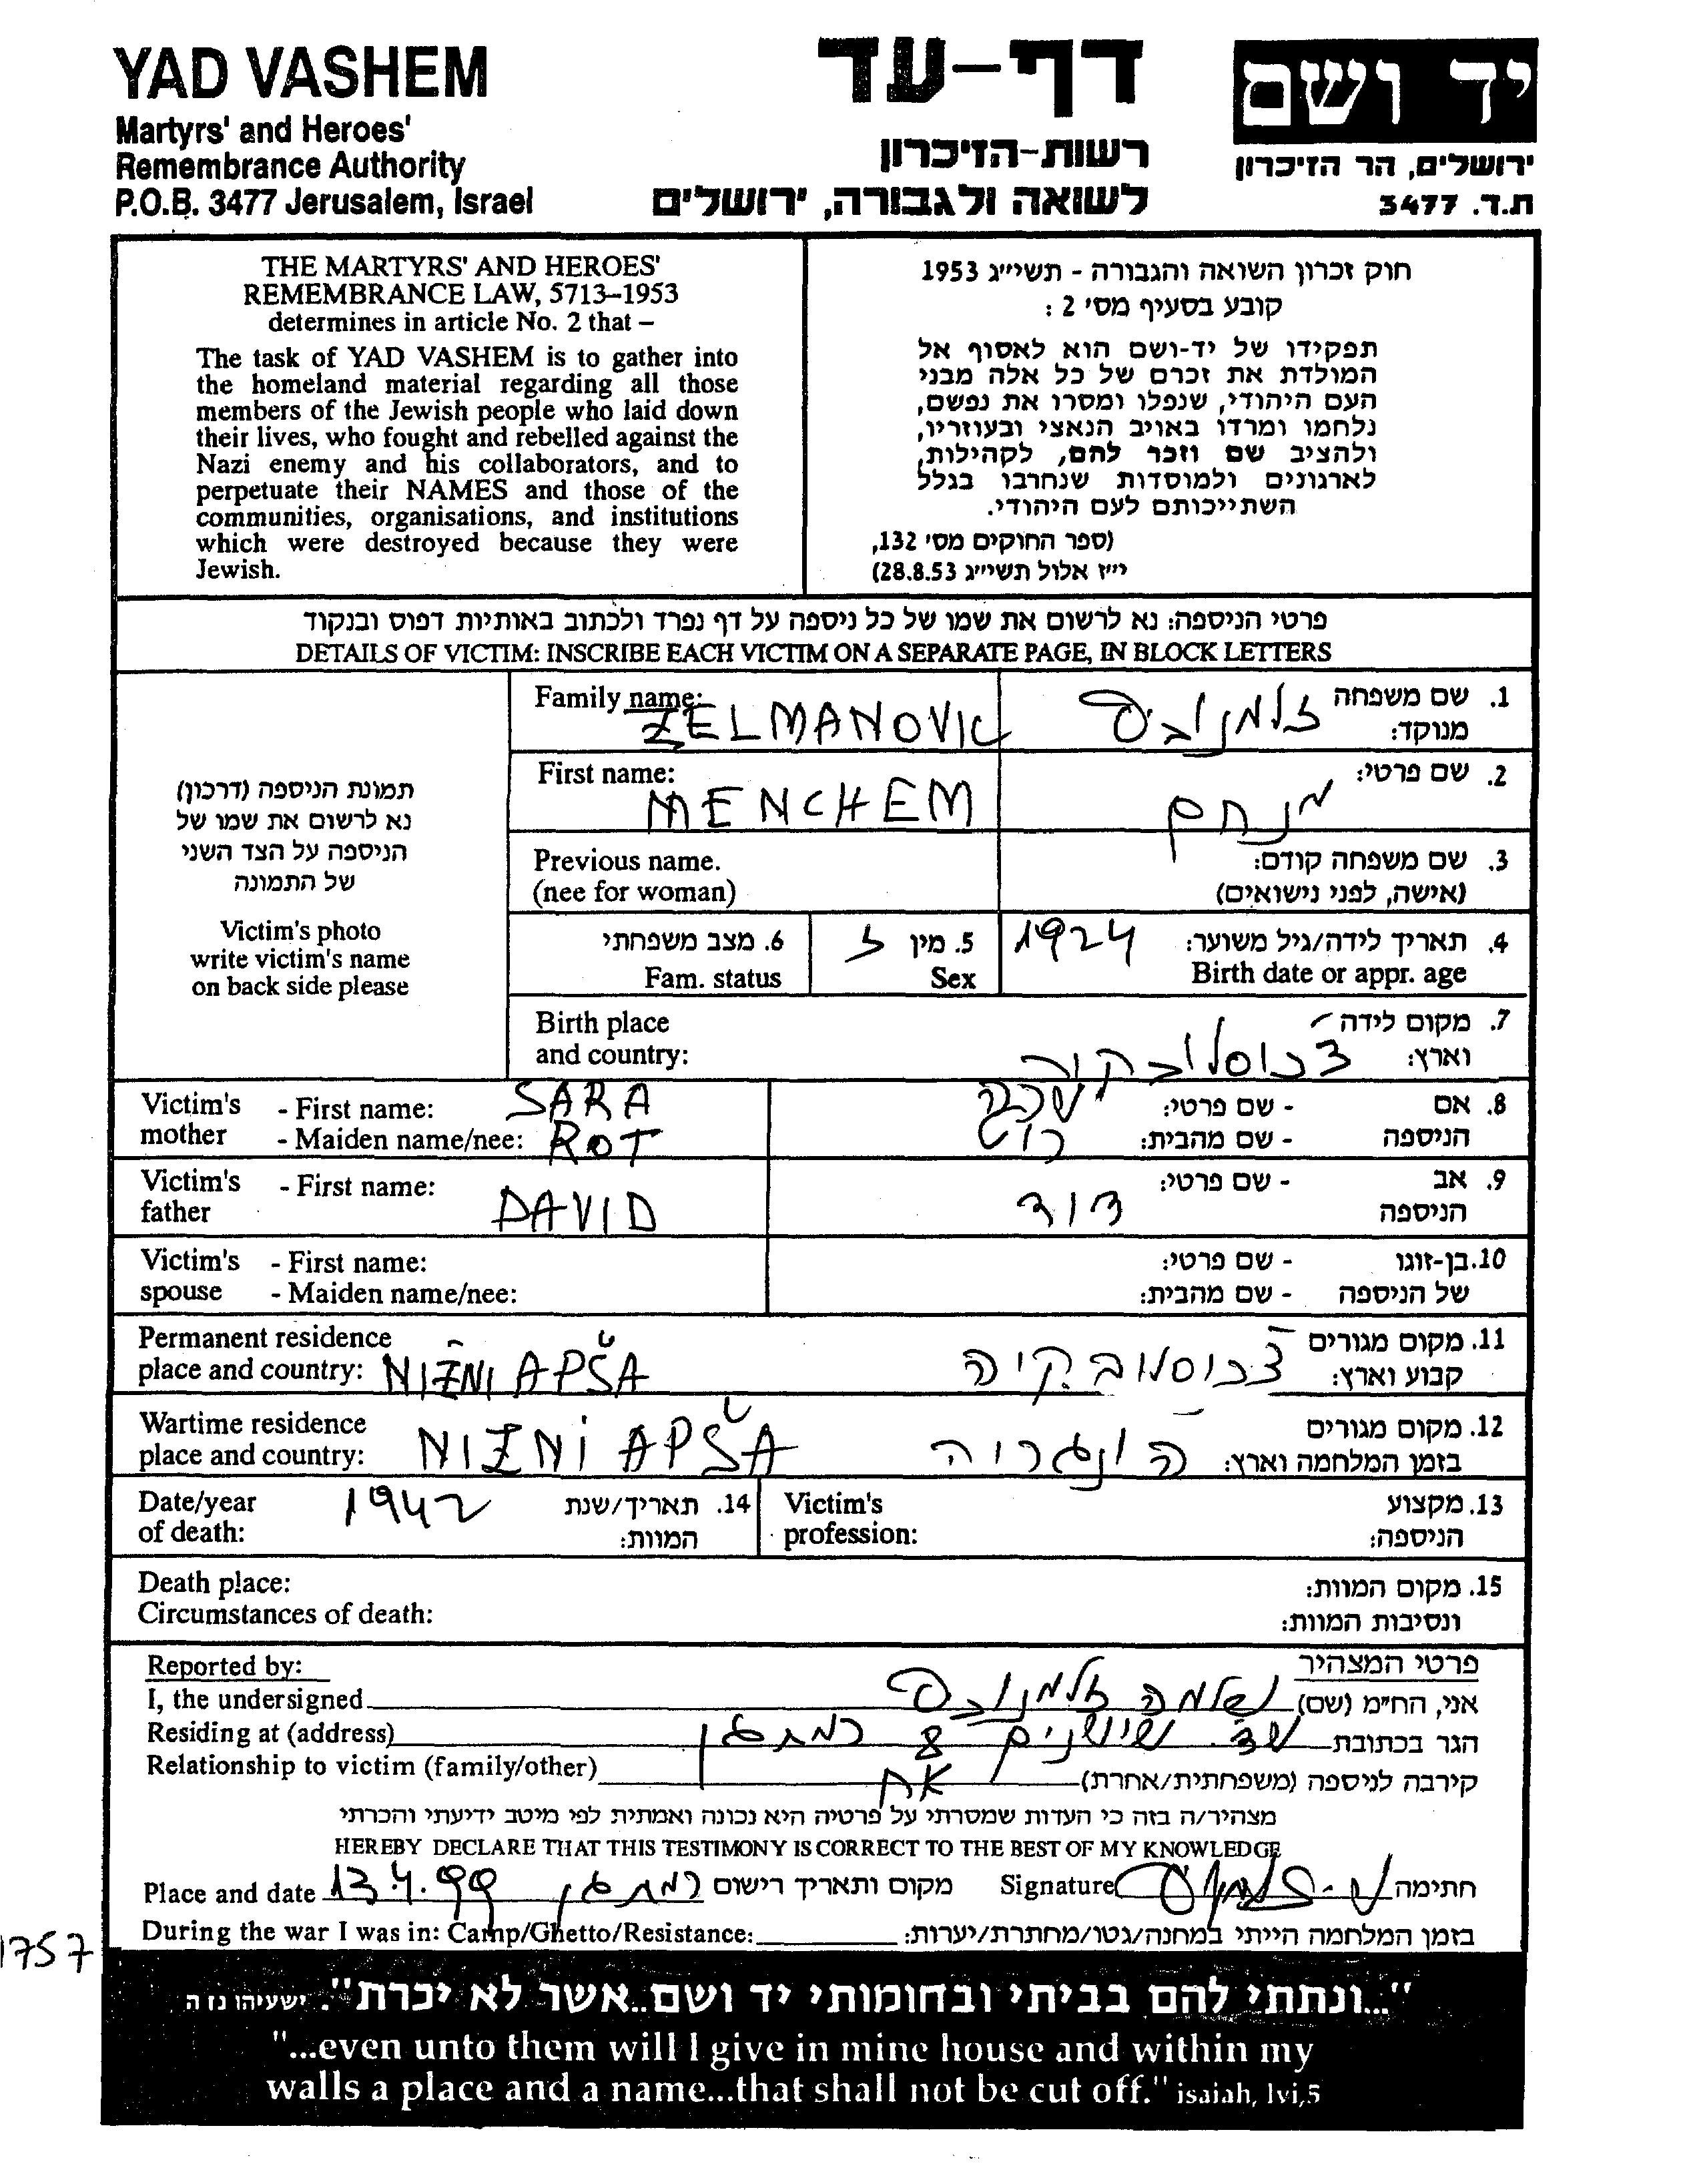 YAD VASHEM
Martyrs' and Heroes'
Remembrance Authority
P.O.B. 3477 Jerusalem, Israel
דף-עד
רשות-הזיכרון
לשואה ולגבורה, ירושלים
יד ושם
ירושלים, הר הזיכרון
ת.ד. 3477
THE MARTYRS' AND HEROES'
REMEMBRANCE LAW, 5713–1953
determines in article No. 2 that –
The task of YAD VASHEM is to gather into
the homeland material regarding all those
members of the Jewish people who laid down
their lives, who fought and rebelled against the
Nazi enemy and his collaborators, and to
perpetuate their NAMES and those of the
communities, organisations, and institutions
which were destroyed because they were
Jewish.
חוק זכרון השואה והגבורה - תשי״ג 1953
קובע בסעיף מס׳ 2 :
תפקידו של יד-ושם הוא לאסוף אל
המולדת את זכרם של כל אלה מבני
העם היהודי, שנפלו ומסרו את נפשם,
נלחמו ומרדו באויב הנאצי ובעוזריו,
ולהציב שם וזכר להם, לקהילות,
לארגונים ולמוסדות שנחרבו בגלל
השתייכותם לעם היהודי.
(ספר החוקים מס׳ 132,
י״ז אלול תשי״ג 28.8.53)
פרטי הניספה: נא לרשום את שמו של כל ניספה על דף נפרד ולכתוב באותיות דפוס ובנקוד
DETAILS OF VICTIM: INSCRIBE EACH VICTIM ON A SEPARATE PAGE, IN BLOCK LETTERS
תמונת הניספה (דרכון)
נא לרשום את שמו של
הניספה על הצד השני
של התמונה
Victim's photo
write victim's name
on back side please
Family name: ZELMANOVIC
1. שם משפחה מנוקד: זלמנוביס
First name: MENCHEM
2. שם פרטי: מנחם
Previous name.
(nee for woman)
3. שם משפחה קודם:
(אישה, לפני נישואים)
4. תאריך לידה/גיל משוער: 1924
Birth date or appr. age
5. מין ז
Sex
6. מצב משפחתי
Fam. status
Birth place
and country:
7. מקום לידה
וארץ: צכוסלובקיה
Victim's mother - First name: SARA
- Maiden name/nee: ROT
8. אם הניספה - שם פרטי: שרה
- שם מהבית: רוט
Victim's father - First name: DAVID
9. אב הניספה - שם פרטי: דוד
Victim's spouse - First name:
- Maiden name/nee:
10. בן-זוגו של הניספה - שם פרטי:
- שם מהבית:
Permanent residence
place and country: NIŽNI APŠA
11. מקום מגורים
קבוע וארץ: צכוסלובקיה
Wartime residence
place and country: NIZNI APŠA
12. מקום מגורים
בזמן המלחמה וארץ: הונגריה
Date/year of death: 1942
14. תאריך/שנת המוות:
Victim's profession:
13. מקצוע הניספה:
Death place:
Circumstances of death:
15. מקום המוות:
ונסיבות המוות:
Reported by:
פרטי המצהיר
I, the undersigned
אני, הח״מ (שם) שלמה זלמנוביס
Residing at (address)
הגר בכתובת שד. שושנים 8 רמת גן
Relationship to victim (family/other)
קירבה לניספה (משפחתית/אחרת) אח
מצהיר/ה בזה כי העדות שמסרתי על פרטיה היא נכונה ואמתית לפי מיטב ידיעתי והכרתי
HEREBY DECLARE THAT THIS TESTIMONY IS CORRECT TO THE BEST OF MY KNOWLEDGE
Place and date 13.4.99 רמת גן מקום ותאריך רישום
Signature חתימה
During the war I was in: Camp/Ghetto/Resistance:
בזמן המלחמה הייתי במחנה/גטו/מחתרת/יערות:
1757
"...ונתתי להם בביתי ובחומותי יד ושם..אשר לא יכרת". ישעיהו נז ה
"...even unto them will I give in mine house and within my
walls a place and a name...that shall not be cut off." isaiah, lvi,5